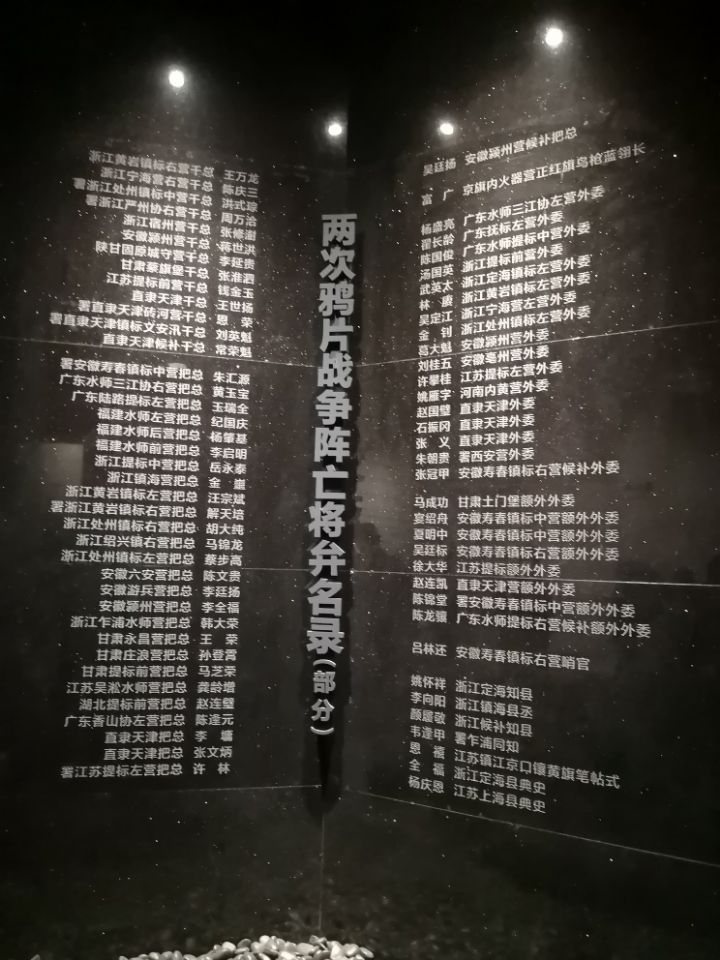 两次鸦片战争阵亡将弁名录(部分)
浙江黄岩镇标右营千总 王万龙
浙江宁海营右营千总 陈庆三
署浙江处州镇标中营千总 洪武琮
署浙江严州协右营千总 周万治
浙江宿州营千总 张修澍
安徽颍州营千总 蒋世洪
陕甘固原城守营千总 李延贵
甘肃蔡旗堡千总 张淮泗
江苏提标前营千总 钱金玉
直隶天津千总 王世扬
署直隶天津砖河营千总 恩荣
署直隶天津镇标文安汛千总 刘英魁
直隶天津候补千总 常荣魁
署安徽寿春镇标中营把总 朱汇源
广东水师三江协右营把总 黄玉宝
广东陆路提标左营把总 玉瑞全
福建水师左营把总 纪国庆
福建水师后营把总 杨肇基
福建水师前营把总 李启明
浙江提标中营把总 岳永泰
浙江镇海营把总 金
浙江黄岩镇标左营把总 汪宗斌
署浙江黄岩镇标右营把总 解天培
浙江处州镇标右营把总 胡大纯
浙江绍兴镇右营把总 马锦龙
浙江处州镇标左营把总 蔡步高
安徽六安营把总 陈文贵
安徽游兵营把总 李廷扬
安徽颍州营把总 李全福
浙江乍浦水师营 韩大荣
甘肃永昌营把总 王荣
甘肃庄浪营把总 孙登霄
甘肃提标前营把总 马芝荣
江苏吴淞水师营把总 龚龄增
湖北提标前营把总 赵连璧
广东香山协左营把总 陈逢元
直隶天津把总 李墉
直隶天津把总 张文炳
署江苏提标左营把总 许林
吴廷扬 安徽颍州营候补把总
富广 京旗内火器营正红旗鸟枪蓝翎长
杨盛亮 广东水师三江协左营外委
翟长龄 广东抚标左营外委
陈国俊 广东水师提标中营外委
汤国英 浙江提标前营外委
武英太 浙江定海镇标左营外委
林赓 浙江黄岩镇标左营外委
吴定江 浙江宁海营左营外委
金钊 浙江处州镇标左营外委
葛大魁 安徽颍州营外委
刘桂五 安徽亳州营外委
许攀桂 江苏提标左营外委
姚雁字 河南内黄营外委
赵国璧 直隶天津外委
石振冈 直隶天津外委
张义 直隶天津外委
朱朝贵 署西安营外委
张冠甲 安徽寿春镇标右营候补外委
马成功 甘肃土门堡额外外委
宴绍舟 安徽寿春镇标中营额外外委
夏明中 安徽寿春镇标中营额外外委
吴廷标 安徽寿春镇标右营额外外委
徐大华 江苏提标额外外委
赵连凯 直隶天津营额外外委
陈锦堂 署安徽寿春镇标中营额外外委
陈龙骧 广东水师提标右营候补额外外委
吕林还 安徽寿春镇标右营哨官
姚怀祥 浙江定海知县
李向阳 浙江镇海县丞
颜履敬 浙江候补知县
韦逢甲 署乍浦同知
恩禧 江苏镇江京口镶黄旗笔帖式
全福 浙江定海县典史
杨庆恩 江苏上海县典史